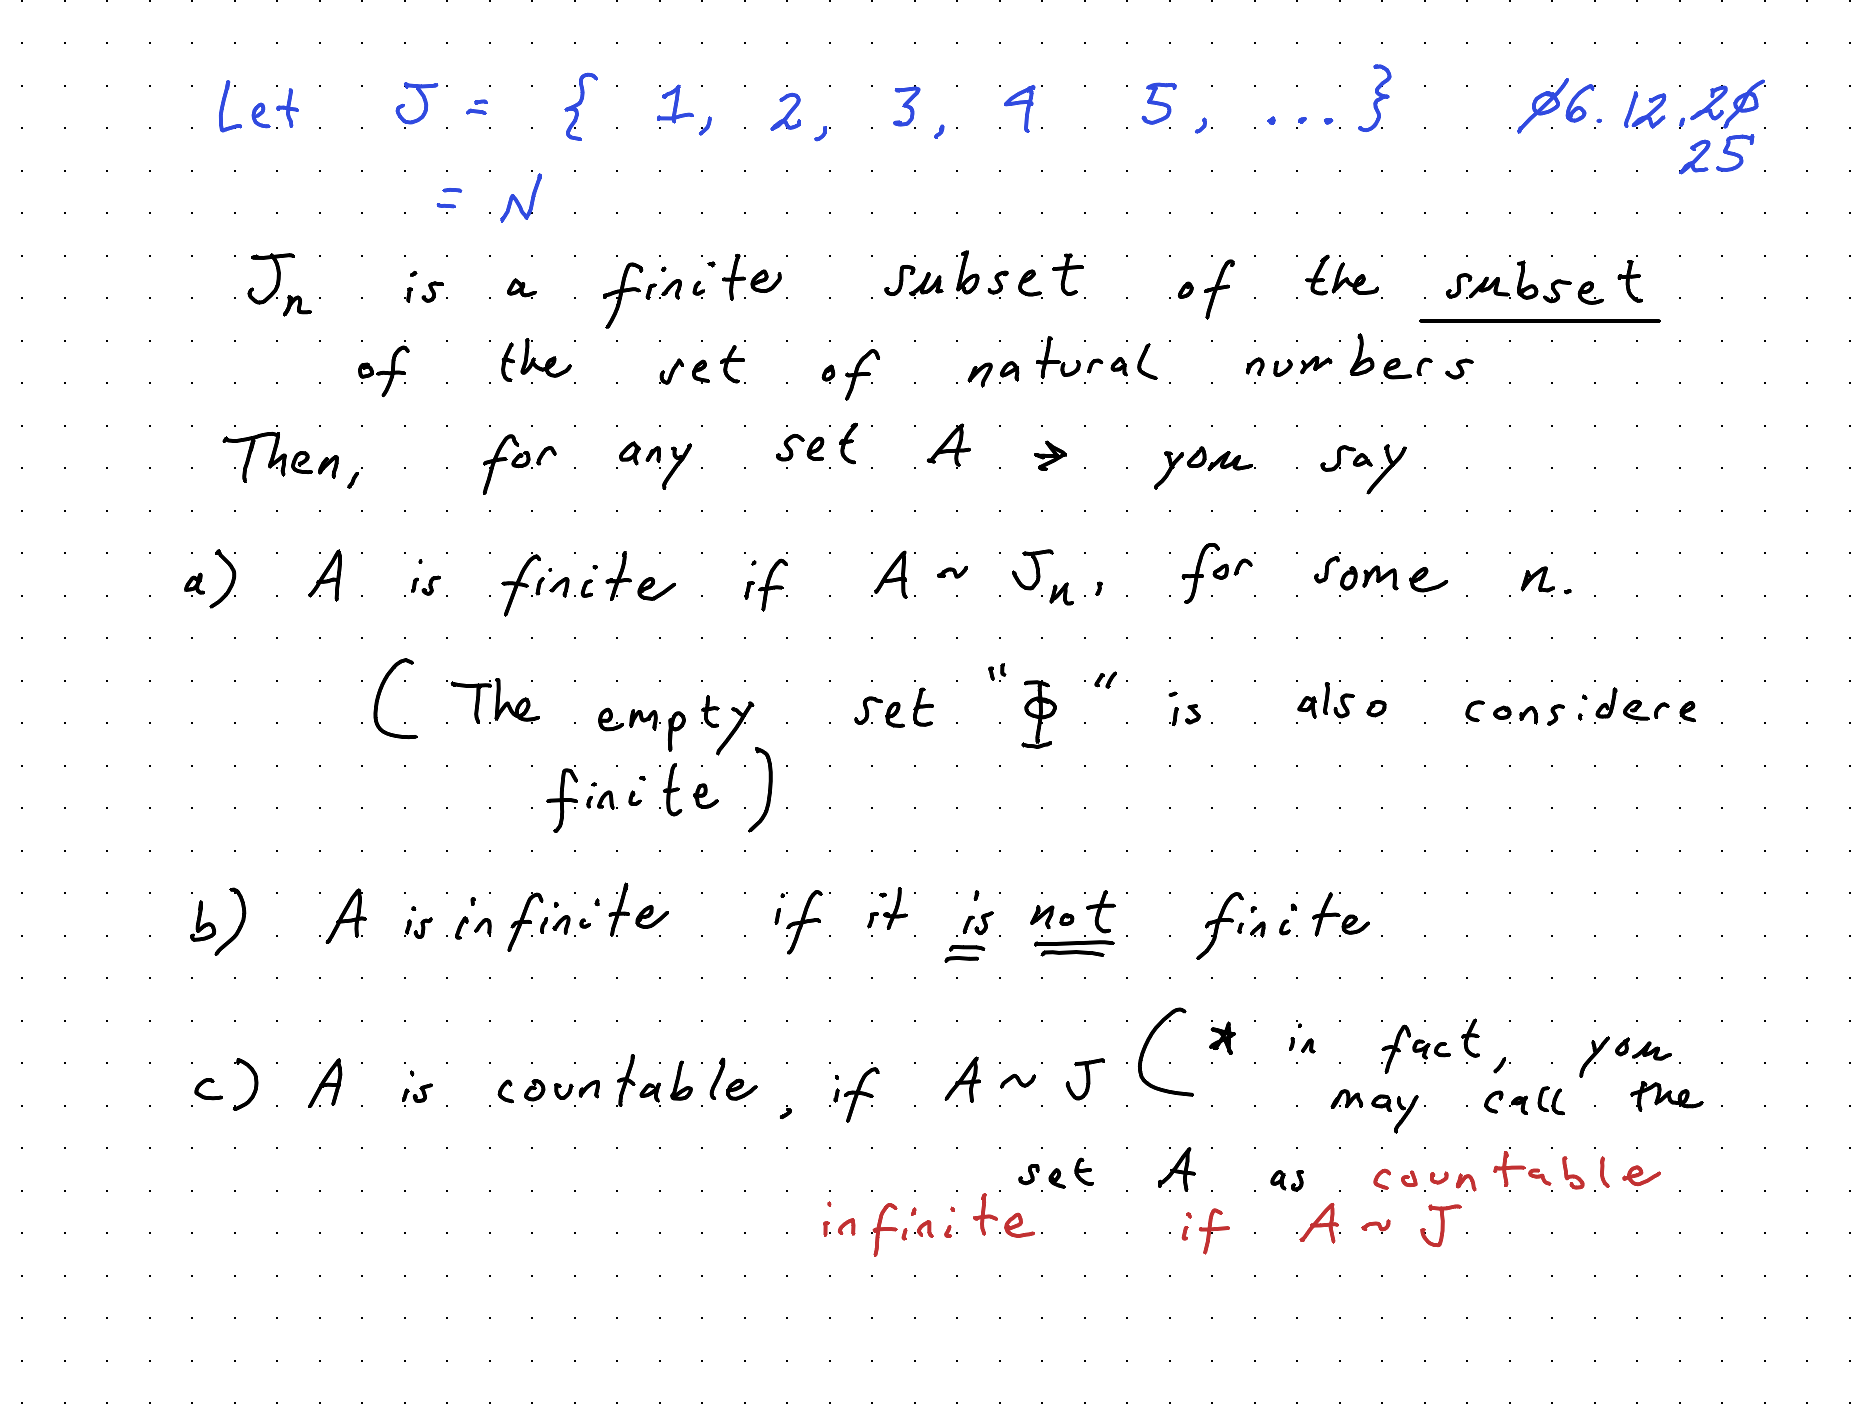 Let J = { 1, 2, 3, 4 5, ... } 06.12.20
25
= N
Jn is a finite subset of the subset
of the set of natural numbers
Then, for any set A → you say
a) A is finite if A ~ Jn, for some n.
(The empty set "Φ" is also considere
finite)
b) A is infinite if it is not finite
c) A is countable, if A ~ J ( * in fact, you
may call the
set A as countable
infinite if A ~ J